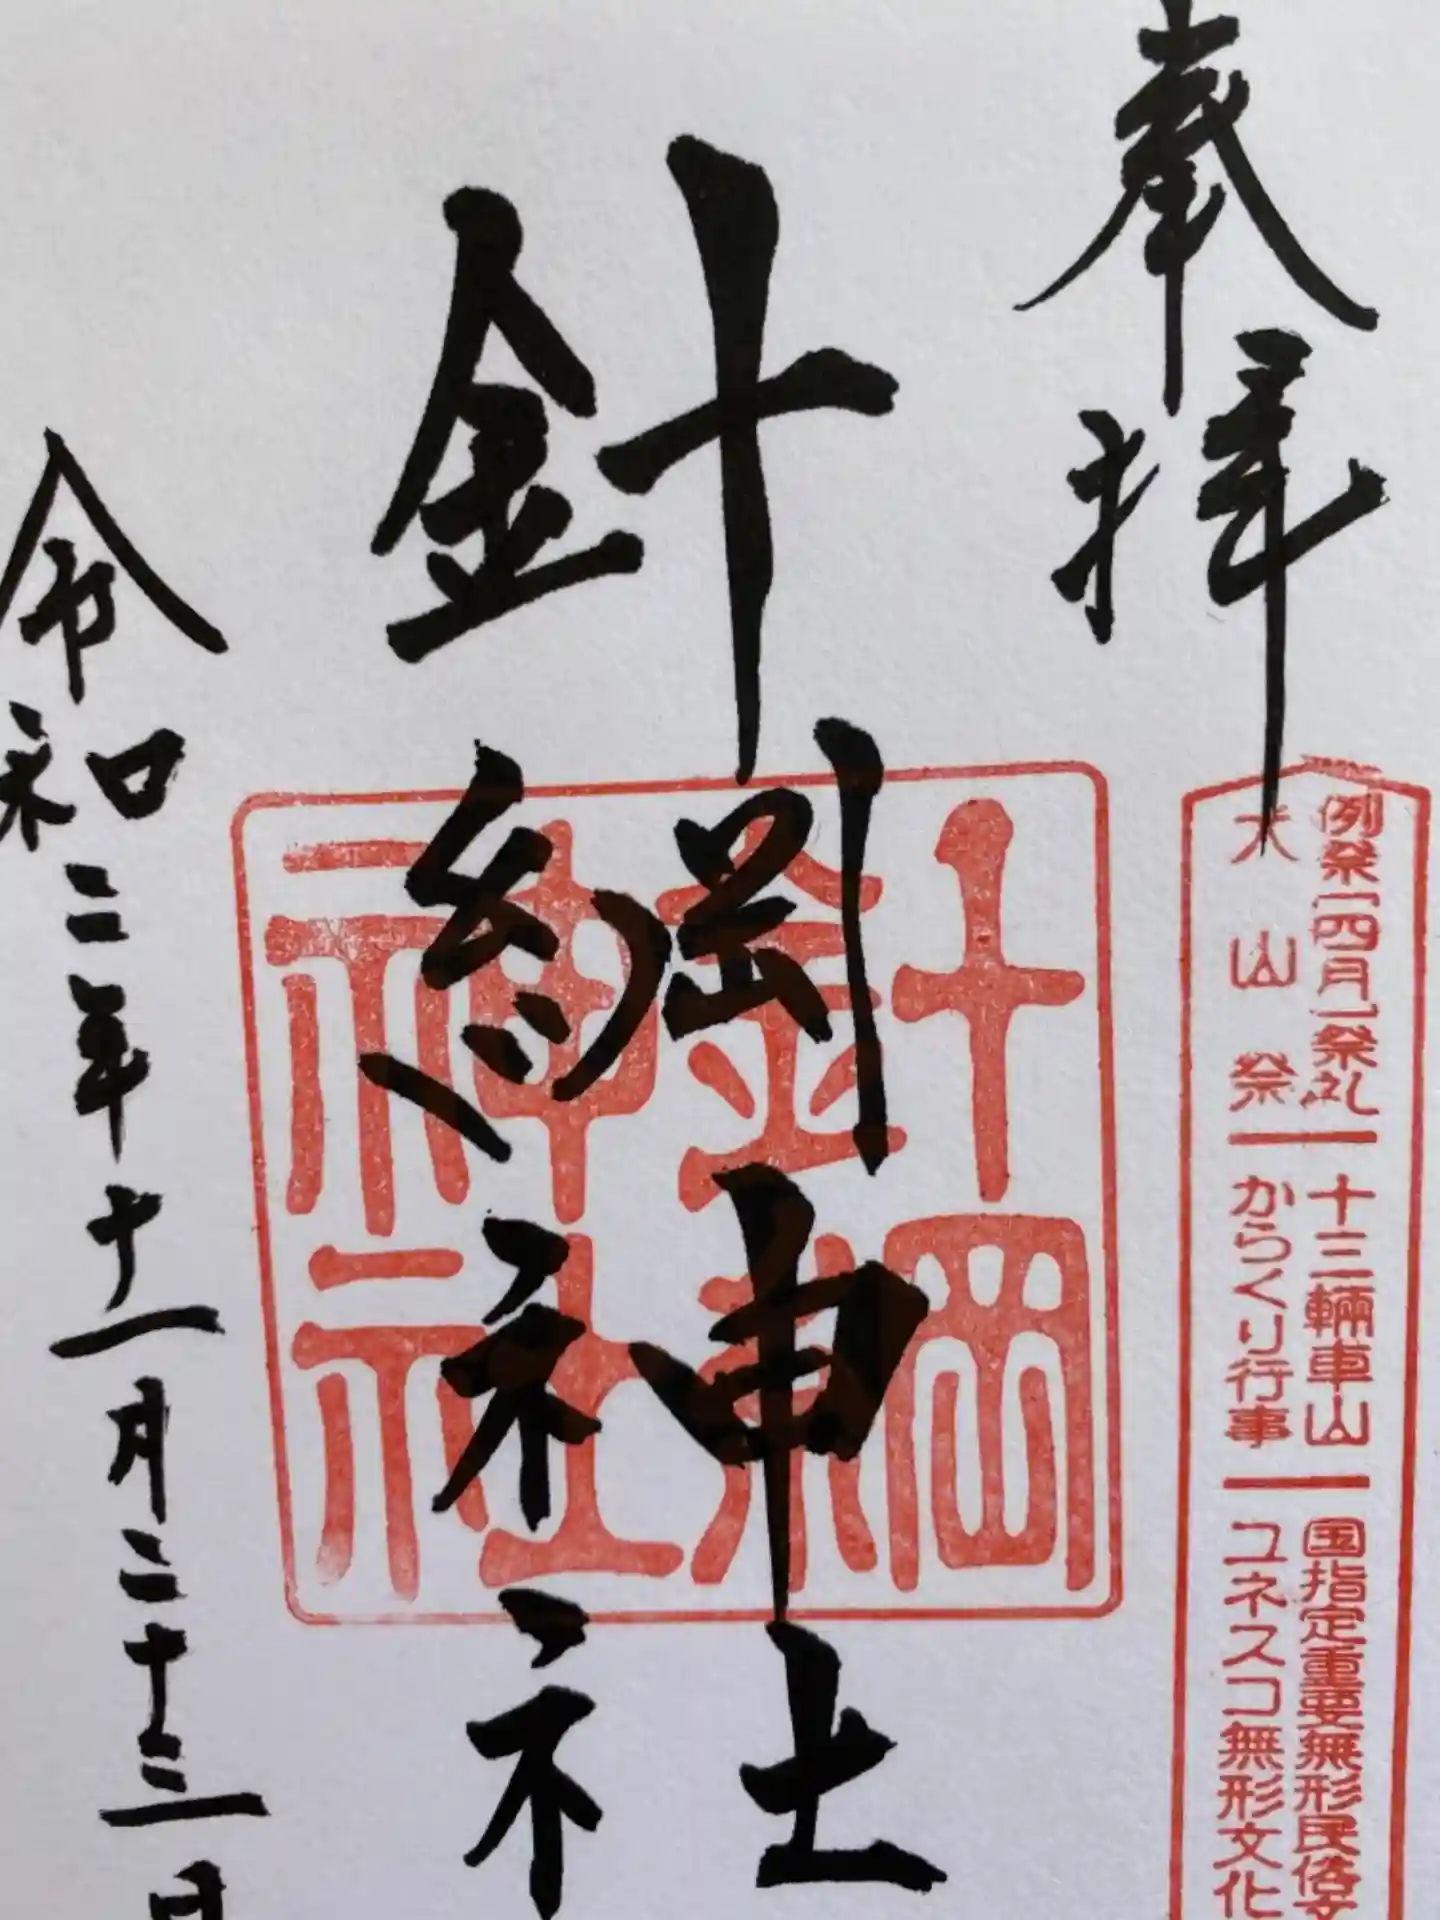 奉拝
例祭(四月)祭礼 十三輛車山 国指定重要無形民俗文
犬山祭 からくり行事 ユネスコ無形文化
針綱神社
針綱神社
令和二年十一月二十三日